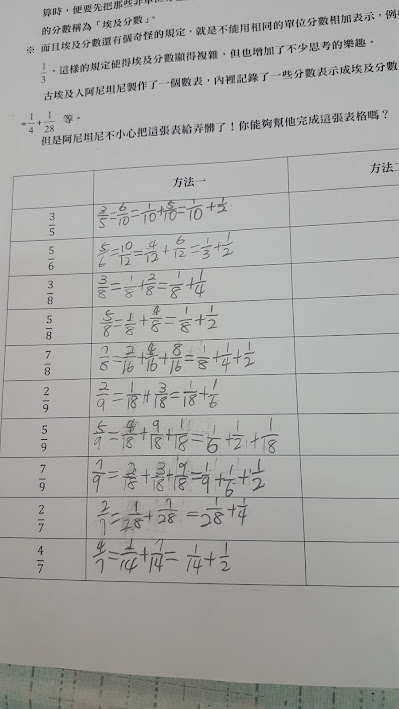 算時,便要先把那些非單位分
的分數稱為「埃及分數」。
※ 而且埃及分數還有個奇怪的規定,就是不能用相同的單位分數相加表示,例
1/3。這樣的規定使得埃及分數顯得複雜,但也增加了不少思考的樂趣。
古埃及人阿尼坦尼製作了一個數表,內裡記錄了一些分數表示成埃及分數
=1/4+1/28 等。
但是阿尼坦尼不小心把這張表給弄髒了!你能夠幫他完成這張表格嗎?
方法一 方法二
3/5 3/5=6/10=1/10+5/10=1/10+1/2
5/6 5/6=10/12=4/12+6/12=1/3+1/2
3/8 3/8=1/8+2/8=1/8+1/4
5/8 5/8=1/8+4/8=1/8+1/2
7/8 7/8=2/16+4/16+8/16=1/8+1/4+1/2
2/9 2/9=1/18+3/18=1/18+1/6
5/9 5/9= /18+9/18+1/18=1/6+1/2+1/18
7/9 7/9=2/18+3/18+9/18=1/9+1/6+1/2
2/7 2/7=1/28+7/28=1/28+1/4
4/7 4/7=1/14+7/14=1/14+1/2